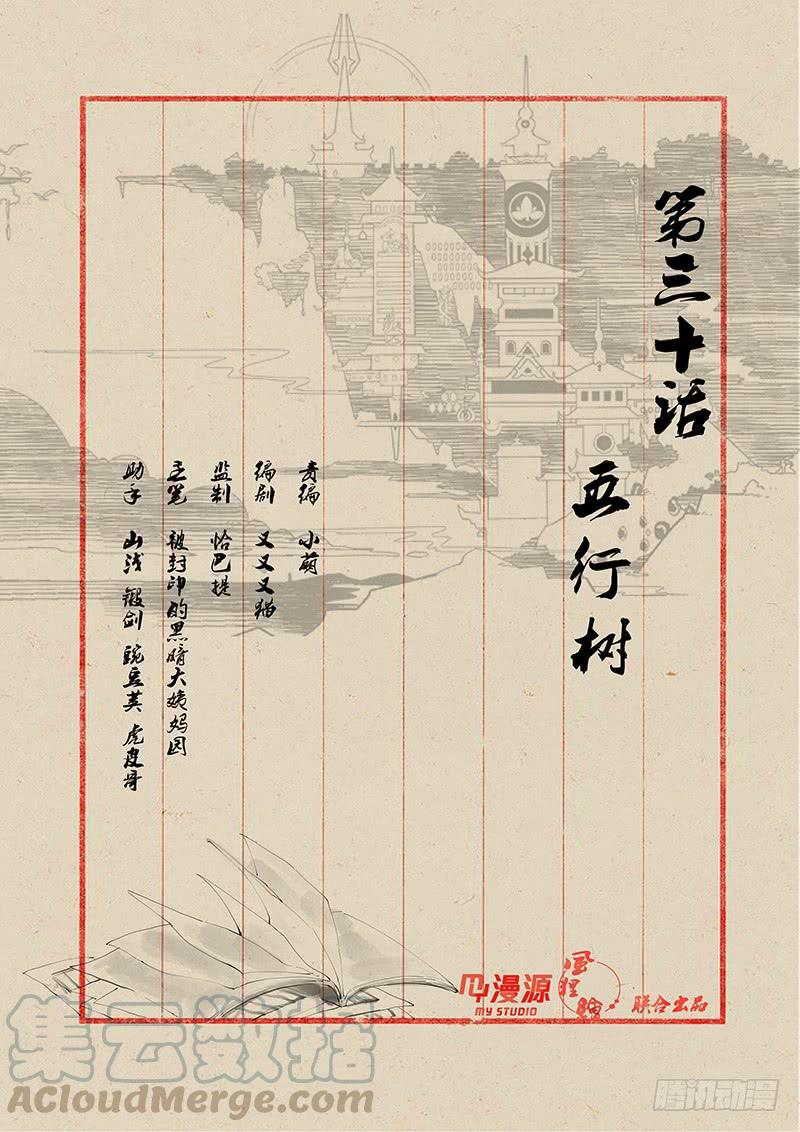 第三十话
五行树
责编 小萌
编剧 又又又猫
监制 恰巴提
主笔 被封印的黑暗大姨妈园
助手 山浅 锻剑 豌豆荚 虎皮哥
漫源
MY STUDIO
联合出品
集云数据
ACloudMerge.com
腾讯动漫